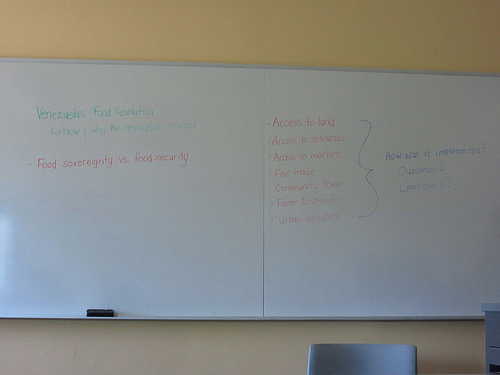 Venezuela's 'Food Revolution'
how & why the revolution
- Food sovereignty vs food security
- Access to land
- Access to resources
- Access to markets
- Fair trade
- Community Power
- Fairer Distribution
- Urban agriculture
How was it implemented?
Outcomes?
Limitations?